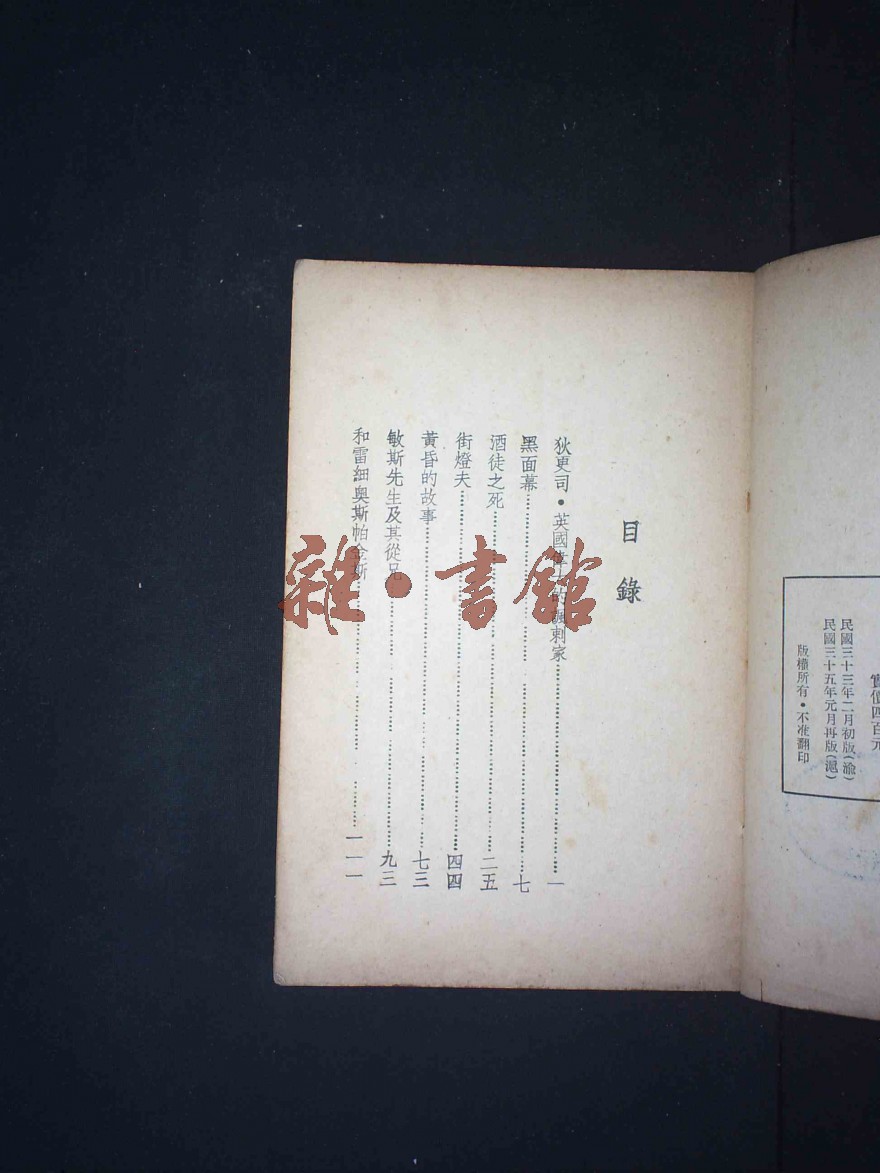 實價四百元
民國三十三年二月初版(渝)
民國三十五年元月再版(滬)
版權所有•不准翻印
目錄
狄更司•英國偉大的諷刺家 一
黑面幕 七
酒徒之死 二五
街燈夫 四四
黃昏的故事 七三
敏斯先生及其從兄 九三
和雷細奧斯帕金斯 一一一
雜•書館